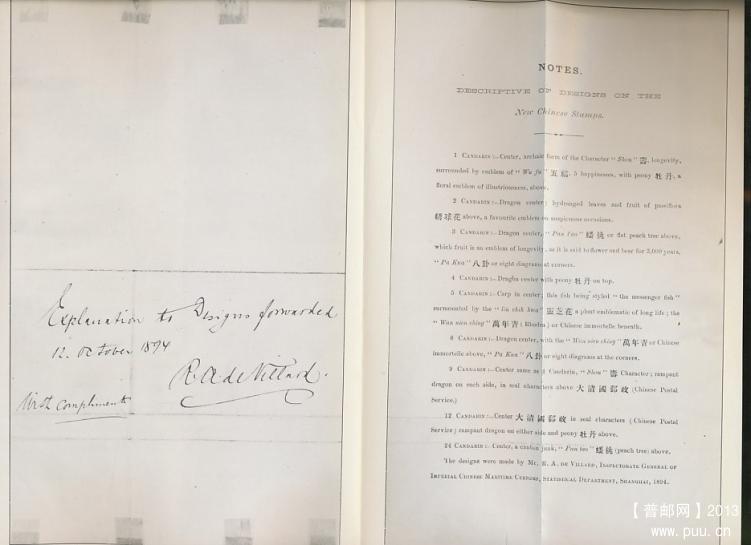 Explanation to Designs forwarded
12. October 1894
R.A. de Villard.
With compliments
NOTES.
DESCRIPTIVE OF DESIGNS ON THE
New Chinese Stamps.
1 CANDARIN:—Center, archaic form of the Character "Shou" 壽, longevity,
surrounded by emblem of "Wu fu" 五福, 5 happinesses, with peony 牡丹, a
floral emblem of illustriousness, above.
2 CANDARIN:—Dragon center; hydranged leaves and fruit of passiflora
綉球花 above, a favourite emblem on auspicious occasions.
3 CANDARIN:—Dragon center, "Pan t'ao" 蟠桃 or flat peach tree above,
which fruit is an emblem of longevity, as it is said to flower and bear for 3,000 years.
"Pa Kua" 八卦 or eight diagrams at corners.
4 CANDARIN:—Dragon center with peony 牡丹 on top.
5 CANDARIN:—Carp in center; this fish being styled "the messenger fish"
surrounded by the 芝花 a plant emblematic of long life; the
"Wan nien ching" 萬年青 (Rhodea) or Chinese immortelle beneath.
6 CANDARIN:—Dragon center, with the "Wan nien ching" 萬年青 or Chinese
immortelle above, "Pa Kua" 八卦 or eight diagrams at the corners.
9 CANDARIN:—Center same as 1 Candarin, "Shou" 壽 Character; rampant
dragon on each side, in seal characters above 大清國郵政 (Chinese Postal
Service.)
12 CANDARIN:—Center 大清國郵政 in seal characters (Chinese Postal
Service; rampant dragon on either side and peony 牡丹 above.
24 CANDARIN:—Center, a junk, "Pan tao" 蟠桃 (peach tree) above.
The designs were made by MR. R. A. DE VILLARD, INSPECTORATE GENERAL OF
IMPERIAL CHINESE MARITIME CUSTOMS, STATISTICAL DEPARTMENT, SHANGHAI, 1894.
【普邮网】2013
www.puu.cn